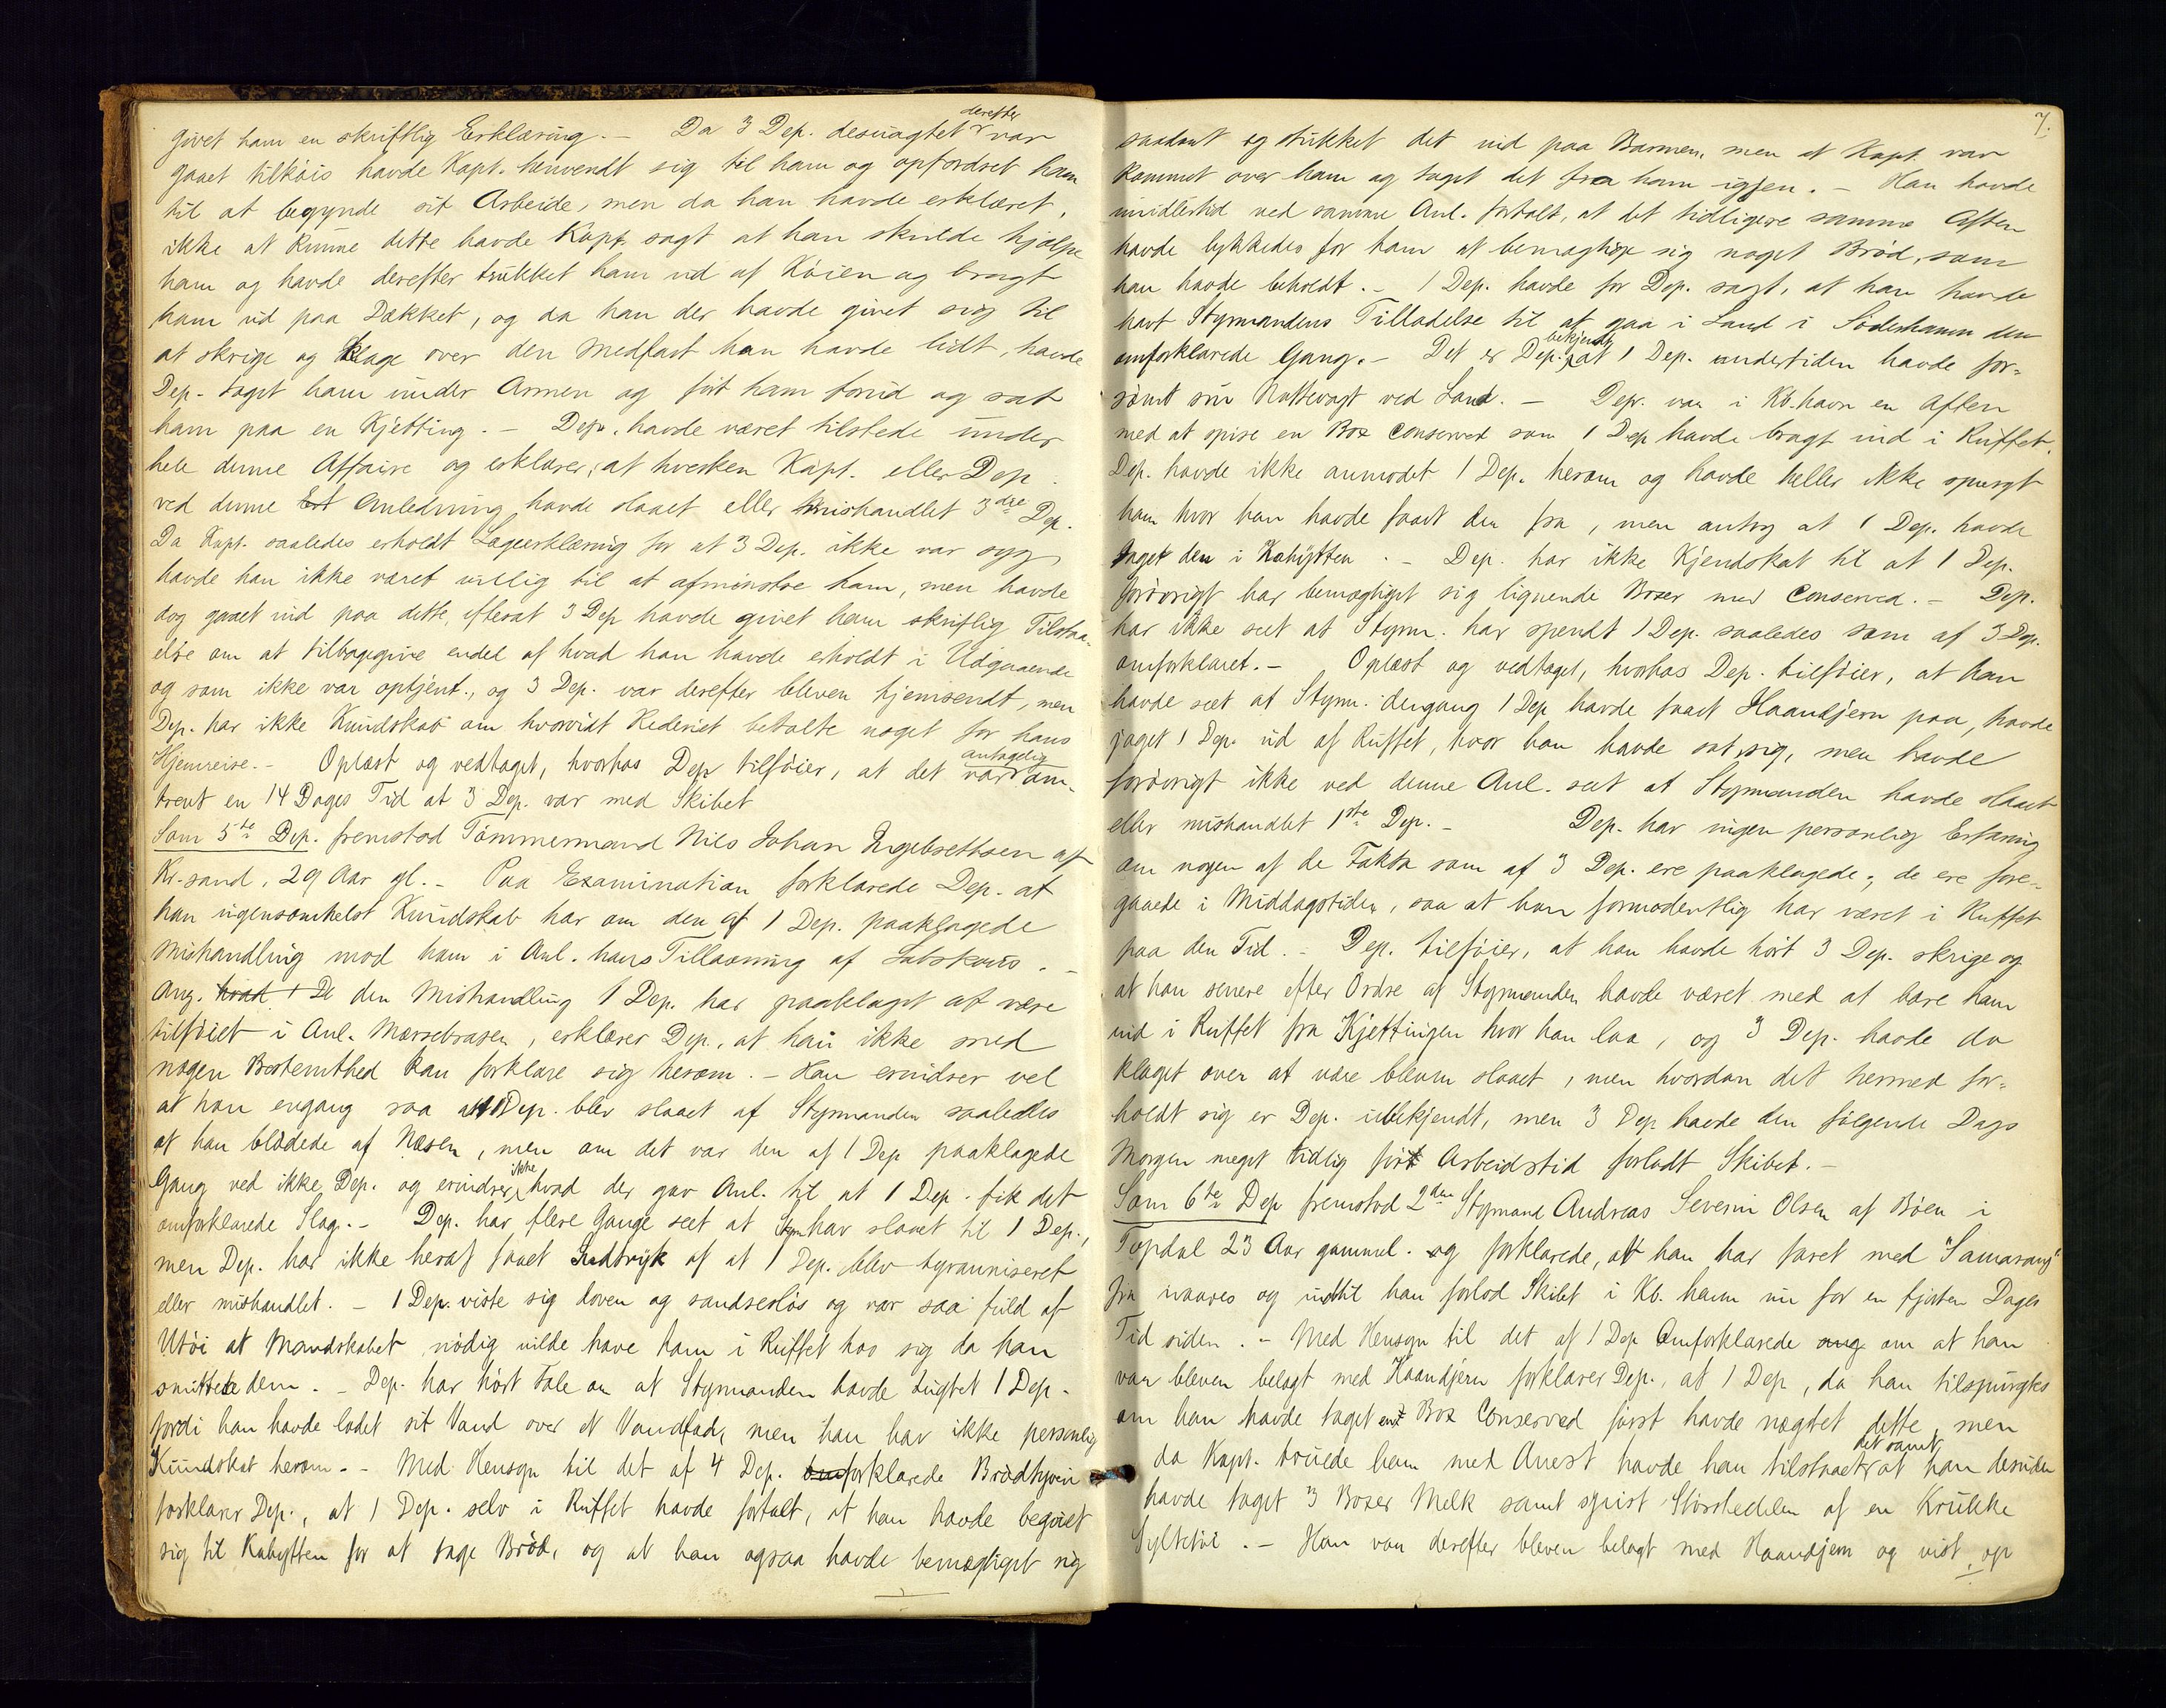 givet ham en skriftlig Erklæring. - Da 3 Dep. desuagtet derefter var
gaaet tilköis havde Kapt. henvendt sig til ham og opfordret ham
til at begynde sit Arbeide, men da han havde erklæret,
ikke at kunne dette havde Kapt. sagt at han skulde hjælpe
ham og havde derefter trukket ham ud af Köien og bragt
ham ud paa Dækket, og da han der havde givet sig til
at skrige og klage over den Medfart han havde lidt, havde
Dep. taget ham under Armen og fört ham forud og sat
ham paa en Kjetting. - Dep. havde været tilstede under
hele denne Affaire og erklærer, at hverken Kapt. eller Dep.
ved denne Anledning havde slaaet eller mishandlet 3die Dep.
Da Kapt. saaledes erholdt Lægeerklæring for at 3 Dep. ikke var syg
havde han ikke været villig til at afmönstre ham, men havde
dog gaaet ind paa dette, efterat 3 Dep havde givet ham skriftlig Tilstaa-
else om at tilbagegive endel af hvad han havde erholdt i Udgaaende
og som ikke var optjent, og 3 Dep. var derefter bleven hjemsendt, men
Dep. har ikke Kundskab om hvorvidt Rederiet betalte noget for hans
Hjemreise. - Oplæst og vedtaget, hvorhos Dep tilföier, at det var antagelig om-
trent en 14 Dages Tid at 3 Dep. var med Skibet
Som 5te Dep. fremstod Tömmermand Nils Johan Ingebrethsen af
Kr.sand, 29 Aar gl. - Paa Examination forklarede Dep. at
han ingensomhelst Kundskab har om den af 1 Dep. paaklagede
Mishandling mod ham i Anl. hans Tillavning af Labskous. -
Ang. hvad 1 De den Mishandling 1 Dep. har paaklaget at være
tilföiet i Anl. Mærsebrasen, erklærer Dep., at han ikke med
nogen Bestemthed kan forklare sig herom. - Han erindrer vel
at han engang saa at 1 Dep. blev slaaet af Styrmanden saaledes
at han blödede af Næsen, men om det var den af 1 Dep paaklagede
Gang ved ikke Dep. og erindrer ikke hvad der gav Anl. til at 1 Dep. fik det
omforklarede Slag. - Dep. har flere Gange seet at Stm har slaaet til 1 Dep.,
men Dep. har ikke heraf faaet Indtryk af at 1 Dep. blev tyranniseret
eller mishandlet. - 1 Dep. viste sig doven og sandseslös og var saa fuld af
Utöi at Mandskabet nödig vilde have ham i Ruffet hos sig da han
smittede dem. - Dep. har hört Tale om at Styrmanden havde tugtet 1 Dep.
fordi han havde ladet sit Vand over et Vandfad, men han har ikke personlig
Kundskab herom. - Med Hensyn til det af 4 Dep. omforklarede Brödtyveri
forklarer Dep., at 1 Dep. selv i Ruffet havde fortalt, at han havde begivet
sig til Kahytten for at tage Bröd, og at han ogsaa havde bemægtiget sig
7.
saadant og stukket det ind paa Barmen, men at Kapt. var
kommet over ham og taget det fra ham igjen. - Han havde
imidlertid ved samme Anl. fortalt, at det tidligere samme Aften
havde lykkedes for ham at bemægtige sig noget Bröd, som
han havde beholdt. - 1 Dep. havde for Dep. sagt, at han havde
havt Styrmandens Tilladelse til at gaa i Land i Söderhamn den
omforklarede Gang. - Det er Dep. bekjendt at 1 Dep. undertiden havde for-
sömt sin Nattevagt ved Land. - Dep. var i Kb.havn en Aften
med at spise en Box Conserved som 1 Dep havde bragt ind i Ruffet.
Dep. havde ikke anmodet 1 Dep. herom og havde heller ikke spurgt
ham hvor han havde faaet den fra, men antog at 1 Dep. havde
taget den i Kahytten. - Dep. har ikke Kjendskab til at 1 Dep.
forövrigt har bemægtiget sig lignende Boxer med Conserved. - Dep.
har ikke seet at Styrm. har spendt 1 Dep. saaledes som af 3 Dep.
omforklaret. - Oplæst og vedtaget, hvorhos Dep. tilföier, at han
havde seet at Styrm. dengang 1 Dep havde faaet Haandjern paa, havde
jaget 1 Dep. ud af Ruffet, hvor han havde sat sig, men havde
forövrigt ikke ved denne Anl. seet at Styrmanden havde slaaet
eller mishandlet 1ste Dep. - Dep. har ingen personlig Erfaring
om nogen af de Fakta som af 3 Dep. ere paaklagede; de ere fore-
gaaede i Middagstiden, saa at han formodentlig har været i Ruffet
paa den Tid. - Dep. tilföier, at han havde hört 3 Dep. skrige og
at han senere efter Ordre af Styrmanden havde været med at bære ham
ind i Ruffet fra Kjettingen hvor han laa, og 3 Dep. havde da
klaget over at være bleven slaaet, men hvordan det hermed for-
holdt sig er Dep. ubekjendt, men 3 Dep havde den fölgende Dags
Morgen meget tidlig för Arbeidstid forladt Skibet. -
Som 6te Dep fremstod 2den Styrmand Andreas Severin Olsen af Böen i
Topdal 23 Aar gammel. og forklarede, at han har faret med "Samarang"
fra ivaares og indtil han forlod Skibet i Kb.havn nu for en fjorten Dages
Tid siden. - Med Hensyn til det af 1 Dep Omforklarede ang om at han
var bleven belagt med Haandjern forklarer Dep., at 1 Dep, da han tilspurgtes
om han havde taget en Box Conserved först havde nægtet dette, men
da Kapt. truede ham med Arrest havde han tilstaaet det samt at han desuden
havde taget 3 Boxer Melk samt spist Störstedelen af en Krukke
Syltetöi. - Han var derefter bleven belagt med Haandjern og vist op